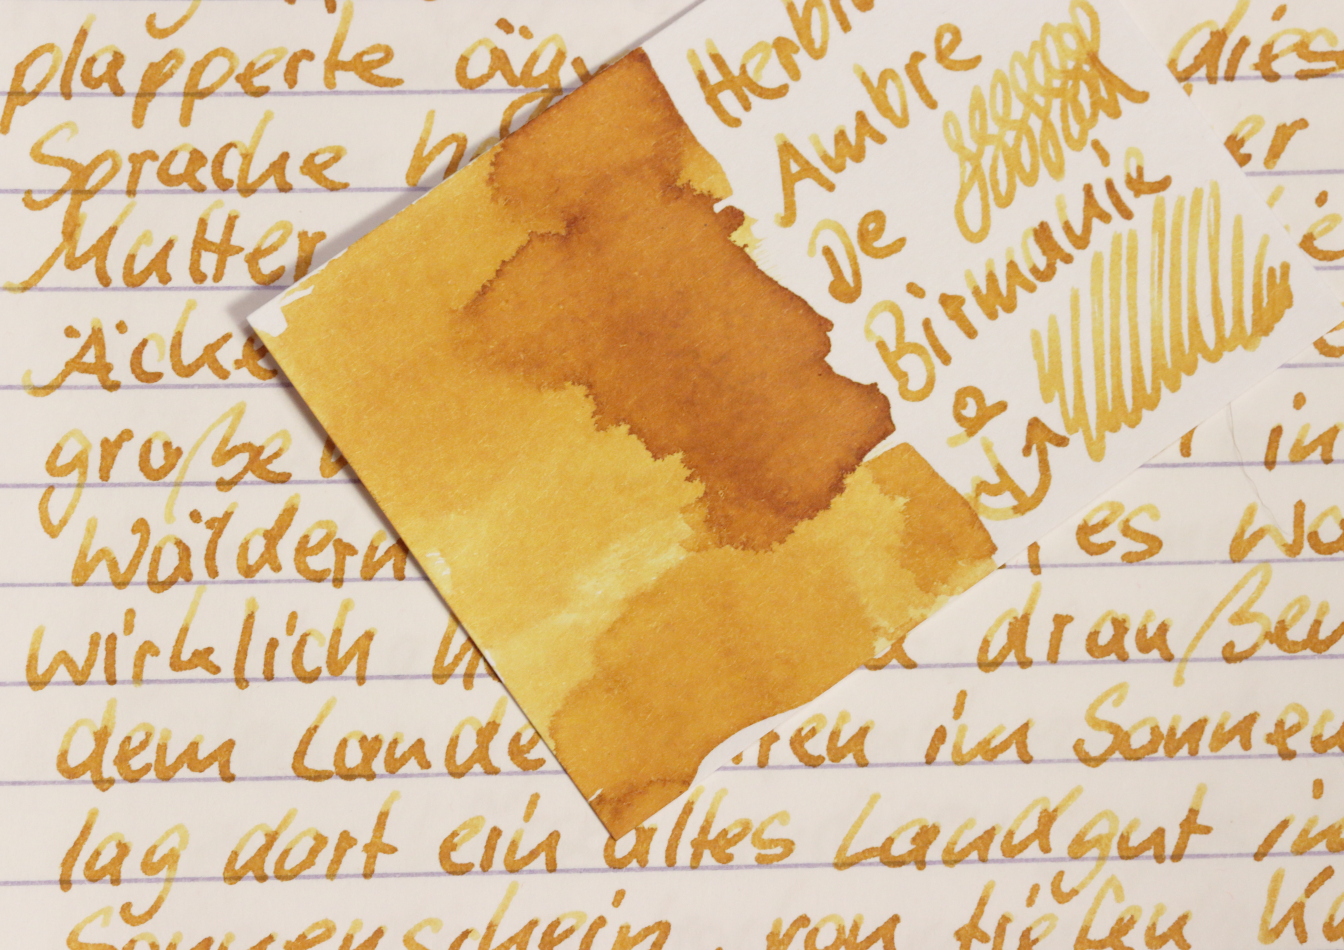 plapperte
Sprache
Mutter
große
Wäldern es
wirklich draußen
dem Lande im Sonnen
lag dort ein altes Landgut in
Sonnenschein, von tiefen
Ambre
De
Birmanie